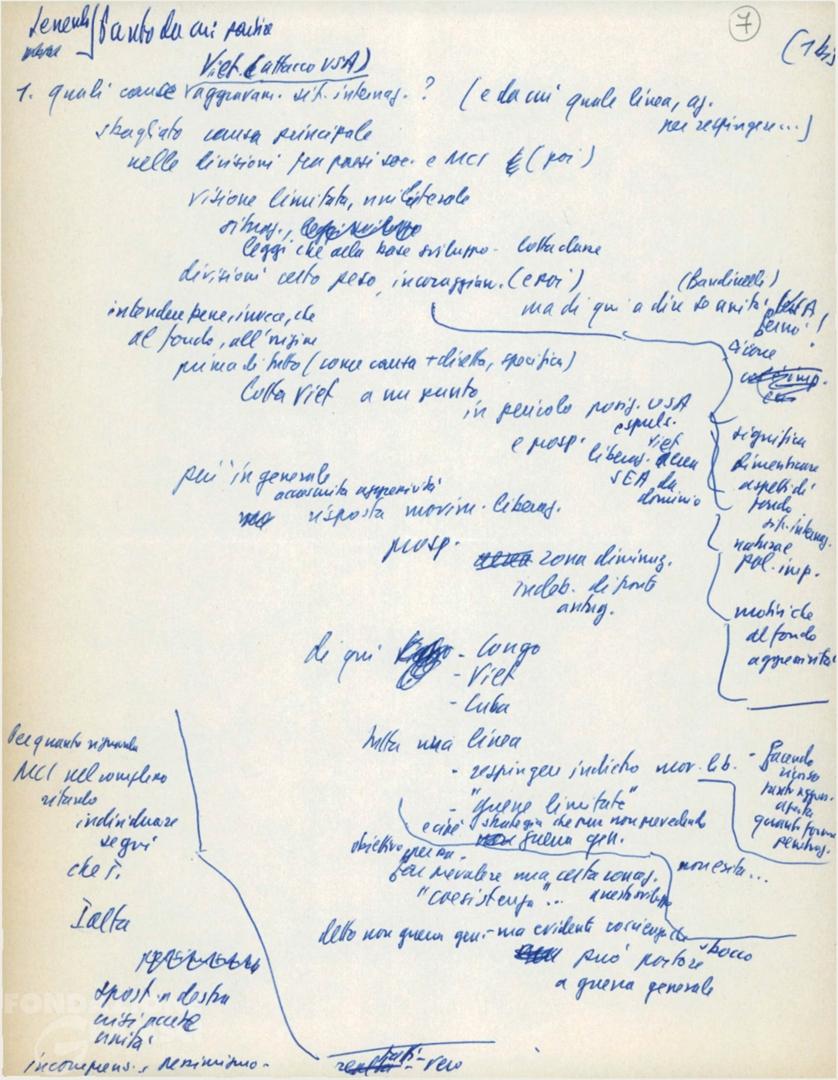 7
(1 bis
Punto da cui partire
Viet. (attacco USA)
1. quali cause raggravam. sit. internaz. ? (e da cui quale linea, az.
per respingere...)
sbagliato causa principale
nelle divisioni tra paesi soc. e MCI (poi)
visione limitata, unilaterale
situaz.,
leggi che alla base sviluppo - lotta classe
divisioni certo peso, incoraggiam. (e poi)
(Bandinelli)
ma di qui a dire se unità, USA
fermi!
intendere bene, invece, che
al fondo, all'origine
prima di tutto (come causa + diretta, specifica)
lotta Viet a un punto
in pericolo posiz. USA
espuls. Viet
e prosp. liberaz.
SEA da
dominio
significa
dimenticare
aspetti di
fondo
sit. internaz.
natura e
pol. imp.
motivi che
al fondo
aggressività
più in generale
accresciuta aggressività
risposta movim. liberaz.
prosp.
zona diminuz.
indeb. di fronte
antag.
di qui - Congo
- Viet
- Cuba
Tutta una linea
- respingere indietro mov. lib. - facendo
ricorso
aperta
quanto forme
penetraz.
- "guerre limitate"
e cioè strategia che pur non prevedendo
guerra gen.
obiettivo
far prevalere una certa concez.
"coesistenza"...
non esita...
detto non guerra gen. - ma evidenti
può portare
a guerra generale
Per quanto riguarda
MCI nel complesso
ritardo
individuare
segni
che s.
Ialta
spost. a destra
crisi
unità
incomprens., pessimismo -
- vero